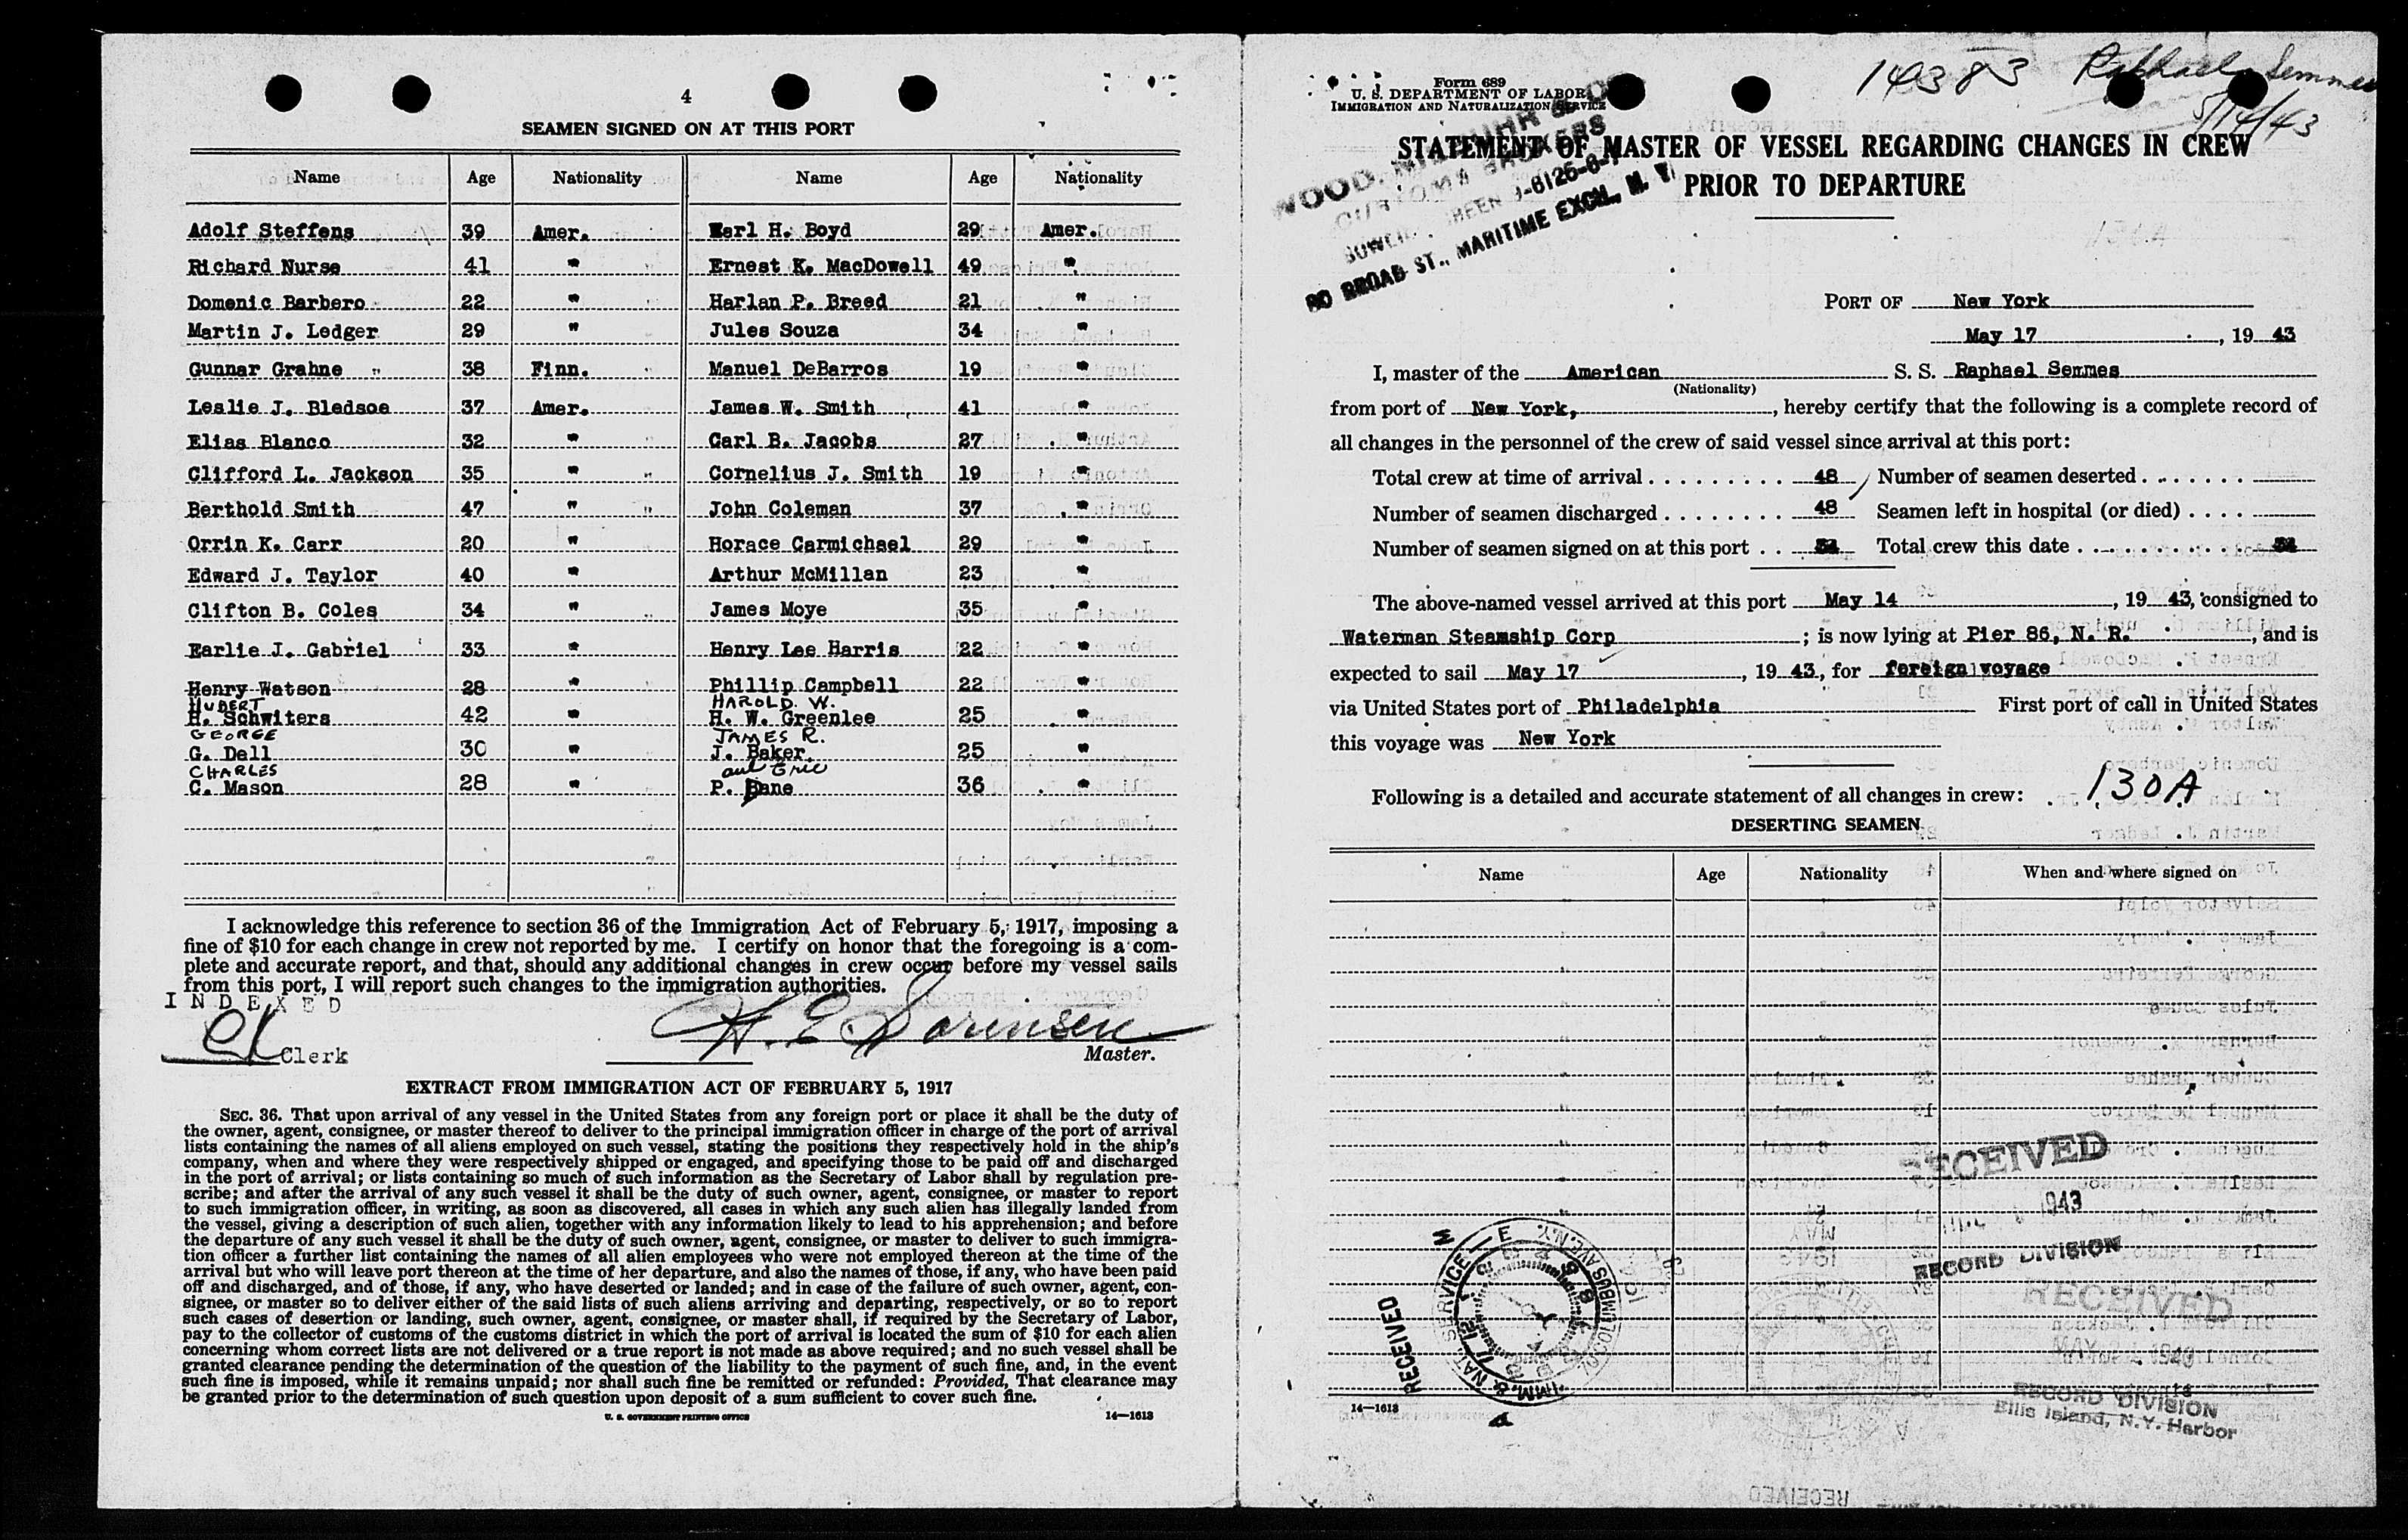 4
SEAMEN SIGNED ON AT THIS PORT
Name Age Nationality Name Age Nationality
Adolf Steffens 39 Amer. Earl H. Boyd 29 Amer.
Richard Nurse 41 " Ernest K. MacDowell 49 "
Domenic Barbero 22 " Harlan P. Breed 21 "
Martin J. Ledger 29 " Jules Souza 34 "
Gunnar Grahne 38 Finn. Manuel DeBarros 19 "
Leslie J. Bledsoe 37 Amer. James W. Smith 41 "
Elias Blanco 32 " Carl B. Jacobs 27 "
Clifford L. Jackson 35 " Cornelius J. Smith 19 "
Berthold Smith 47 " John Coleman 37 "
Orrin K. Carr 20 " Horace Carmichael 29 "
Edward J. Taylor 40 " Arthur McMillan 23 "
Clifton B. Coles 34 " James Moye 35 "
Earlie J. Gabriel 33 " Henry Lee Harris 22 "
Henry Watson 28 " Phillip Campbell 22 "
HUBERT HAROLD W.
H. Schwiters 42 " H. W. Greenlee 25 "
GEORGE JAMES R.
G. Dell 30 " J. Baker 25 "
CHARLES aul Eric
C. Mason 28 " P. Dane 36 "
I acknowledge this reference to section 36 of the Immigration Act of February 5, 1917, imposing a
fine of $10 for each change in crew not reported by me. I certify on honor that the foregoing is a com-
plete and accurate report, and that, should any additional changes in crew occur before my vessel sails
from this port, I will report such changes to the immigration authorities.
INDEXED
Clerk
H. E. Sorensen
Master.
EXTRACT FROM IMMIGRATION ACT OF FEBRUARY 5, 1917
SEC. 36. That upon arrival of any vessel in the United States from any foreign port or place it shall be the duty of
the owner, agent, consignee, or master thereof to deliver to the principal immigration officer in charge of the port of arrival
lists containing the names of all aliens employed on such vessel, stating the positions they respectively hold in the ship's
company, when and where they were respectively shipped or engaged, and specifying those to be paid off and discharged
in the port of arrival; or lists containing so much of such information as the Secretary of Labor shall by regulation pre-
scribe; and after the arrival of any such vessel it shall be the duty of such owner, agent, consignee, or master to report
to such immigration officer, in writing, as soon as discovered, all cases in which any such alien has illegally landed from
the vessel, giving a description of such alien, together with any information likely to lead to his apprehension; and before
the departure of any such vessel it shall be the duty of such owner, agent, consignee, or master to deliver to such immigra-
tion officer a further list containing the names of all alien employees who were not employed thereon at the time of the
arrival but who will leave port thereon at the time of her departure, and also the names of those, if any, who have been paid
off and discharged, and of those, if any, who have deserted or landed; and in case of the failure of such owner, agent, con-
signee, or master so to deliver either of the said lists of such aliens arriving and departing, respectively, or so to report
such cases of desertion or landing, such owner, agent, consignee, or master shall, if required by the Secretary of Labor,
pay to the collector of customs of the customs district in which the port of arrival is located the sum of $10 for each alien
concerning whom correct lists are not delivered or a true report is not made as above required; and no such vessel shall be
granted clearance pending the determination of the question of the liability to the payment of such fine, and, in the event
such fine is imposed, while it remains unpaid; nor shall such fine be remitted or refunded: Provided, That clearance may
be granted prior to the determination of such question upon deposit of a sum sufficient to cover such fine.
U. S. GOVERNMENT PRINTING OFFICE 14—1613
Form 689
U. S. DEPARTMENT OF LABOR
IMMIGRATION AND NATURALIZATION SERVICE
14383 Raphael Semmes
5/14/43
STATEMENT OF MASTER OF VESSEL REGARDING CHANGES IN CREW
PRIOR TO DEPARTURE
WOOD,
BROAD ST., MARITIME EXCH., N. Y.
PORT OF New York
May 17, 19 43
I, master of the American S. S. Raphael Semmes
(Nationality)
from port of New York, hereby certify that the following is a complete record of
all changes in the personnel of the crew of said vessel since arrival at this port:
Total crew at time of arrival 48 Number of seamen deserted
Number of seamen discharged 48 Seamen left in hospital (or died)
Number of seamen signed on at this port Total crew this date
The above-named vessel arrived at this port May 14, 19 43, consigned to
Waterman Steamship Corp; is now lying at Pier 86, N. R., and is
expected to sail May 17, 19 43, for foreign voyage
via United States port of Philadelphia First port of call in United States
this voyage was New York
Following is a detailed and accurate statement of all changes in crew: 130A
DESERTING SEAMEN
Name Age Nationality When and where signed on
RECEIVED
1943
RECORD DIVISION
RECEIVED
RECEIVED
RECORD DIVISION
Ellis Island, N.Y. Harbor
14—1613